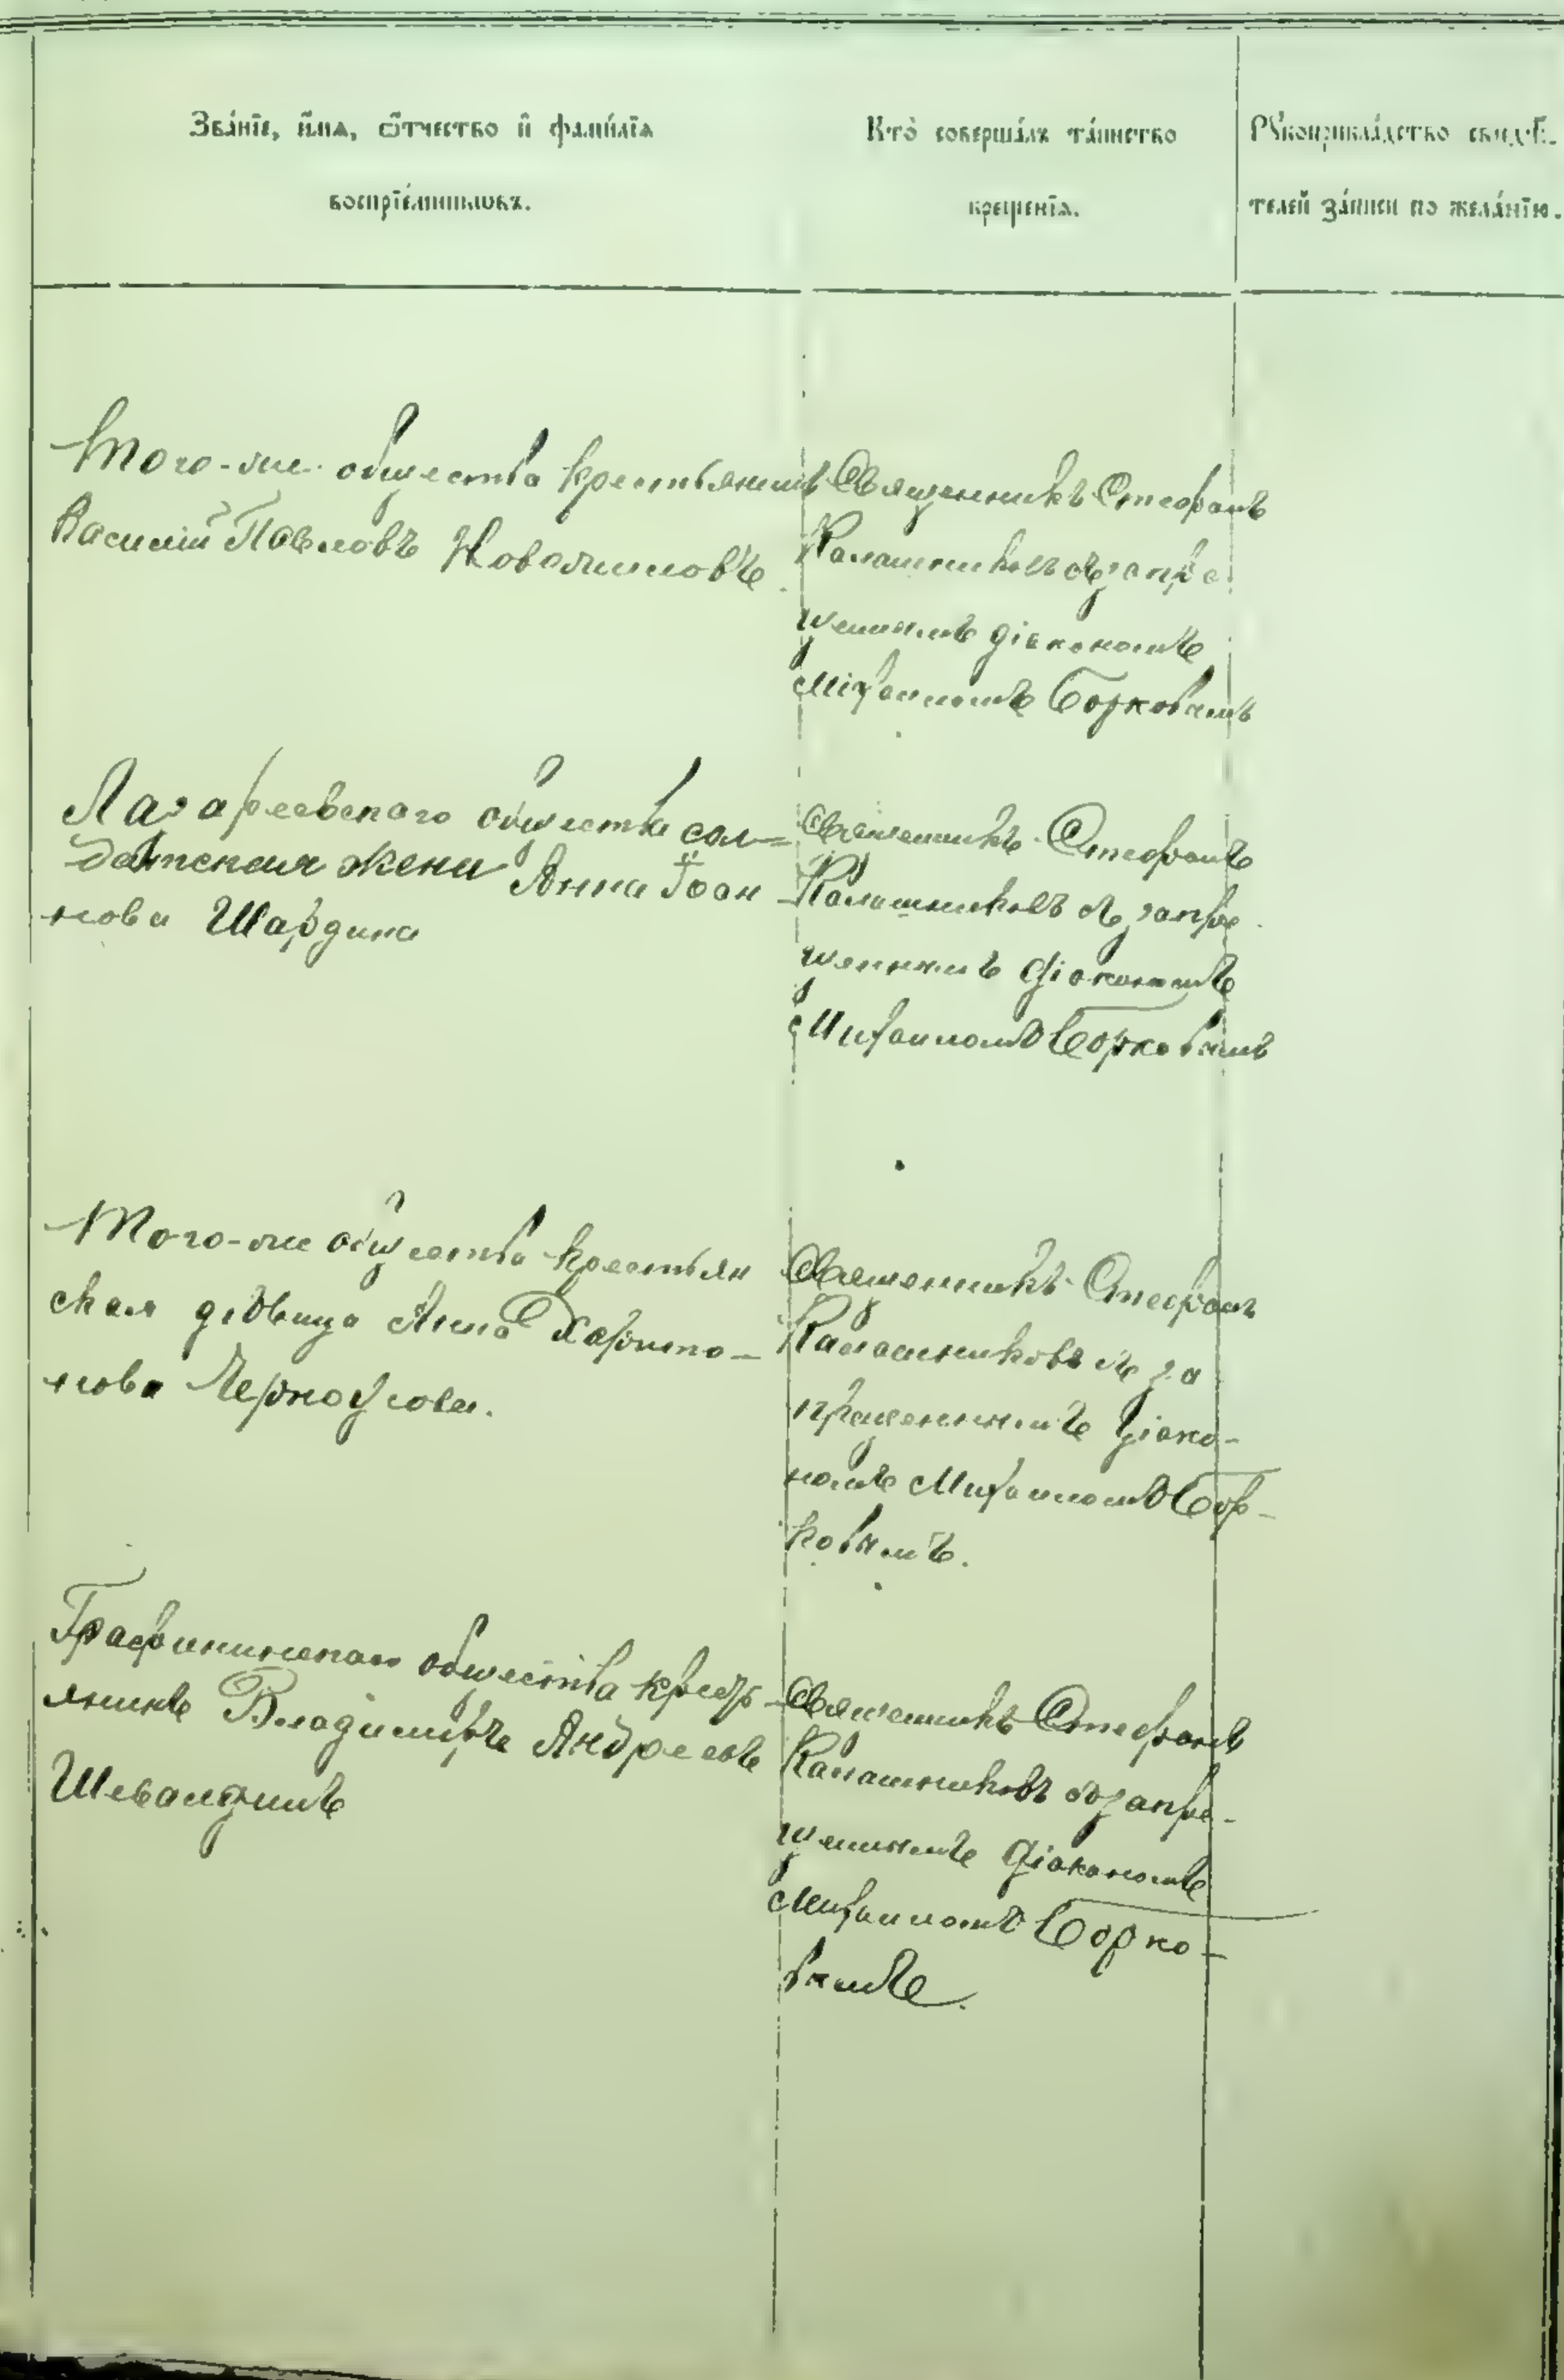 Зва́нїе, и҆́мѧ, ѻ҆́тчество и҆ фамі́лїа
воспрїе́мникѡвъ.
Кто̀ соверша́лъ та́инство
креще́нїѧ.
Рꙋкоприкла́дство свидѣ́-
телей за́писи по жела́нїю.
Того-же общества крестьянинъ
Василій Павловъ Новожиловъ.
Священникъ Стефанъ
Калашниковъ съ запре
щеннымъ діакономъ
Міхаиломъ Борковымъ
Лазаревскаго общества сол=
датская жена Анна Іоан-
нова Шардина
Священникъ Стефанъ
Калашниковъ съ запре
щеннымъ діакономъ
Михаиломъ Борковымъ
Того-же общества крестьян
ская дѣвица Анна Харито-
нова Черноусова.
Священникъ Стефанъ
Калашниковъ съ за
прещеннымъ діако-
номъ Михаиломъ Бор-
ковымъ.
общества крест-
янинъ Владимиръ Андреевъ
Священникъ Стефанъ
Калашниковъ съ запре-
щеннымъ діакономъ
Михаиломъ Борко-
вымъ.